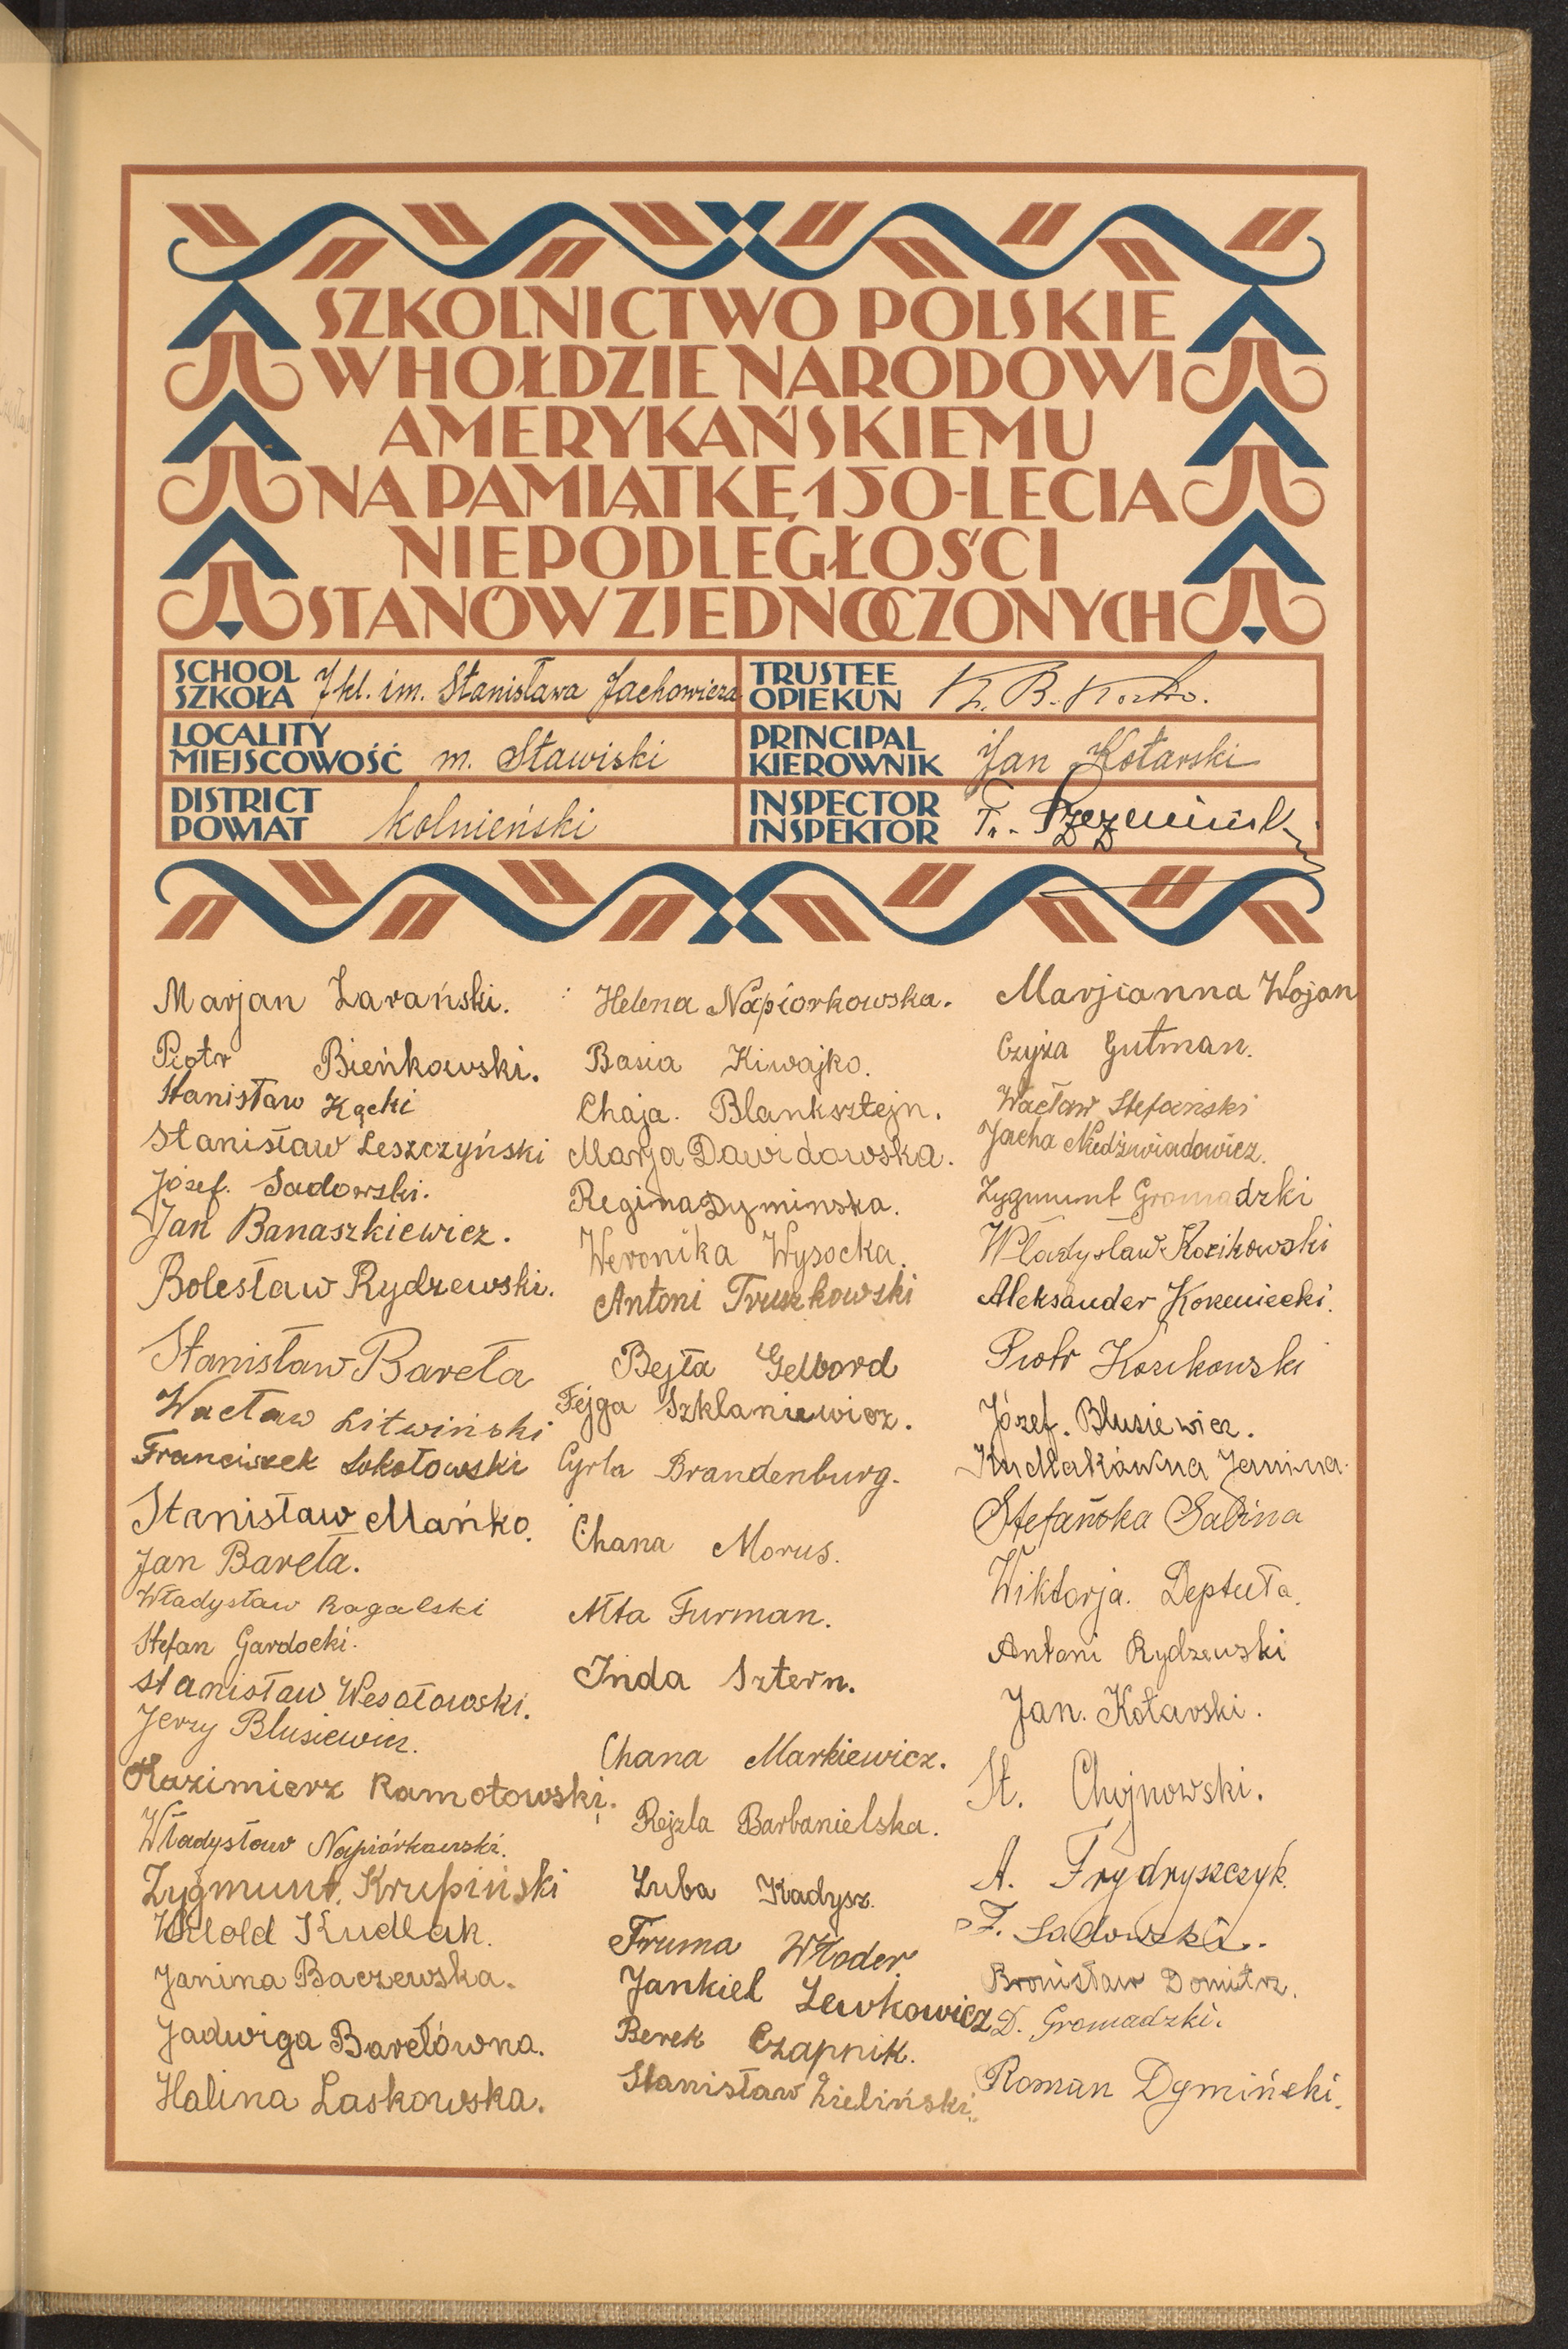 SZKOLNICTWO POLSKIE
W HOŁDZIE NARODOWI
AMERYKAŃSKIEMU
NA PAMIĄTKĘ 150-LECIA
NIEPODLEGŁOŚCI
STANÓW ZJEDNOCZONYCH
SCHOOL
SZKOŁA 7 kl. im. Stanisława Jachowicza
TRUSTEE
OPIEKUN
LOCALITY
MIEJSCOWOŚĆ m. Stawiski
PRINCIPAL
KIEROWNIK Jan Kotarski
DISTRICT
POWIAT kolnieński
INSPECTOR
INSPEKTOR
Marjan Zarański.
Piotr Bieńkowski.
Stanisław Kącki
Stanisław Leszczyński
Józef. Sadowski.
Jan Banaszkiewicz.
Bolesław Rydzewski.
Stanisław Bareła
Wacław Litwiński
Franciszek Sokołowski
Stanisław Mańko.
Jan Bareła.
Władysław Rogalski
Stefan Gardocki.
Stanisław Wesołowski.
Jerzy Blusiewicz.
Kazimierz Ramotowski.
Władysław Napiórkowski.
Zygmunt. Krupiński
Witold Kudlak.
Janina Baczewska.
Jadwiga Barełówna.
Halina Laskowska.
Helena Napiorkowska.
Basia Kiwajko.
Chaja. Blanksztejn.
Marja Dawidowska.
Regina Dyminska.
Weronika Wysocka.
Antoni Truszkowski
Bejła Gelbord
Fejga Szklaniewicz.
Cyrla Brandenburg.
Chana Morus.
Ałta Furman.
Inda Sztern.
Chana Markiewicz.
Rejzla Barbanielska.
Luba Kadysz.
Fruma Włoder.
Jankiel Lewkowicz
Berek Czapnik.
Stanisław Zieliński.
Marjianna Wojan
Czyża Gutman.
Wacław Stefański
Jacha Niedźwiadowicz.
Zygmunt Gromadzki
Władysław Kozikowski
Aleksander Korzeniecki.
Piotr Kozikowski
Józef. Blusiewicz.
Kudlakówna Janina.
Stefańska Sabina
Wiktorja. Deptuła.
Antoni Rydzewski
Jan. Kotarski.
St. Chojnowski.
A. Frydryszczyk.
F. Sadowska.
Bronisław Domitrz.
D. Gromadzki.
Roman Dymiński.